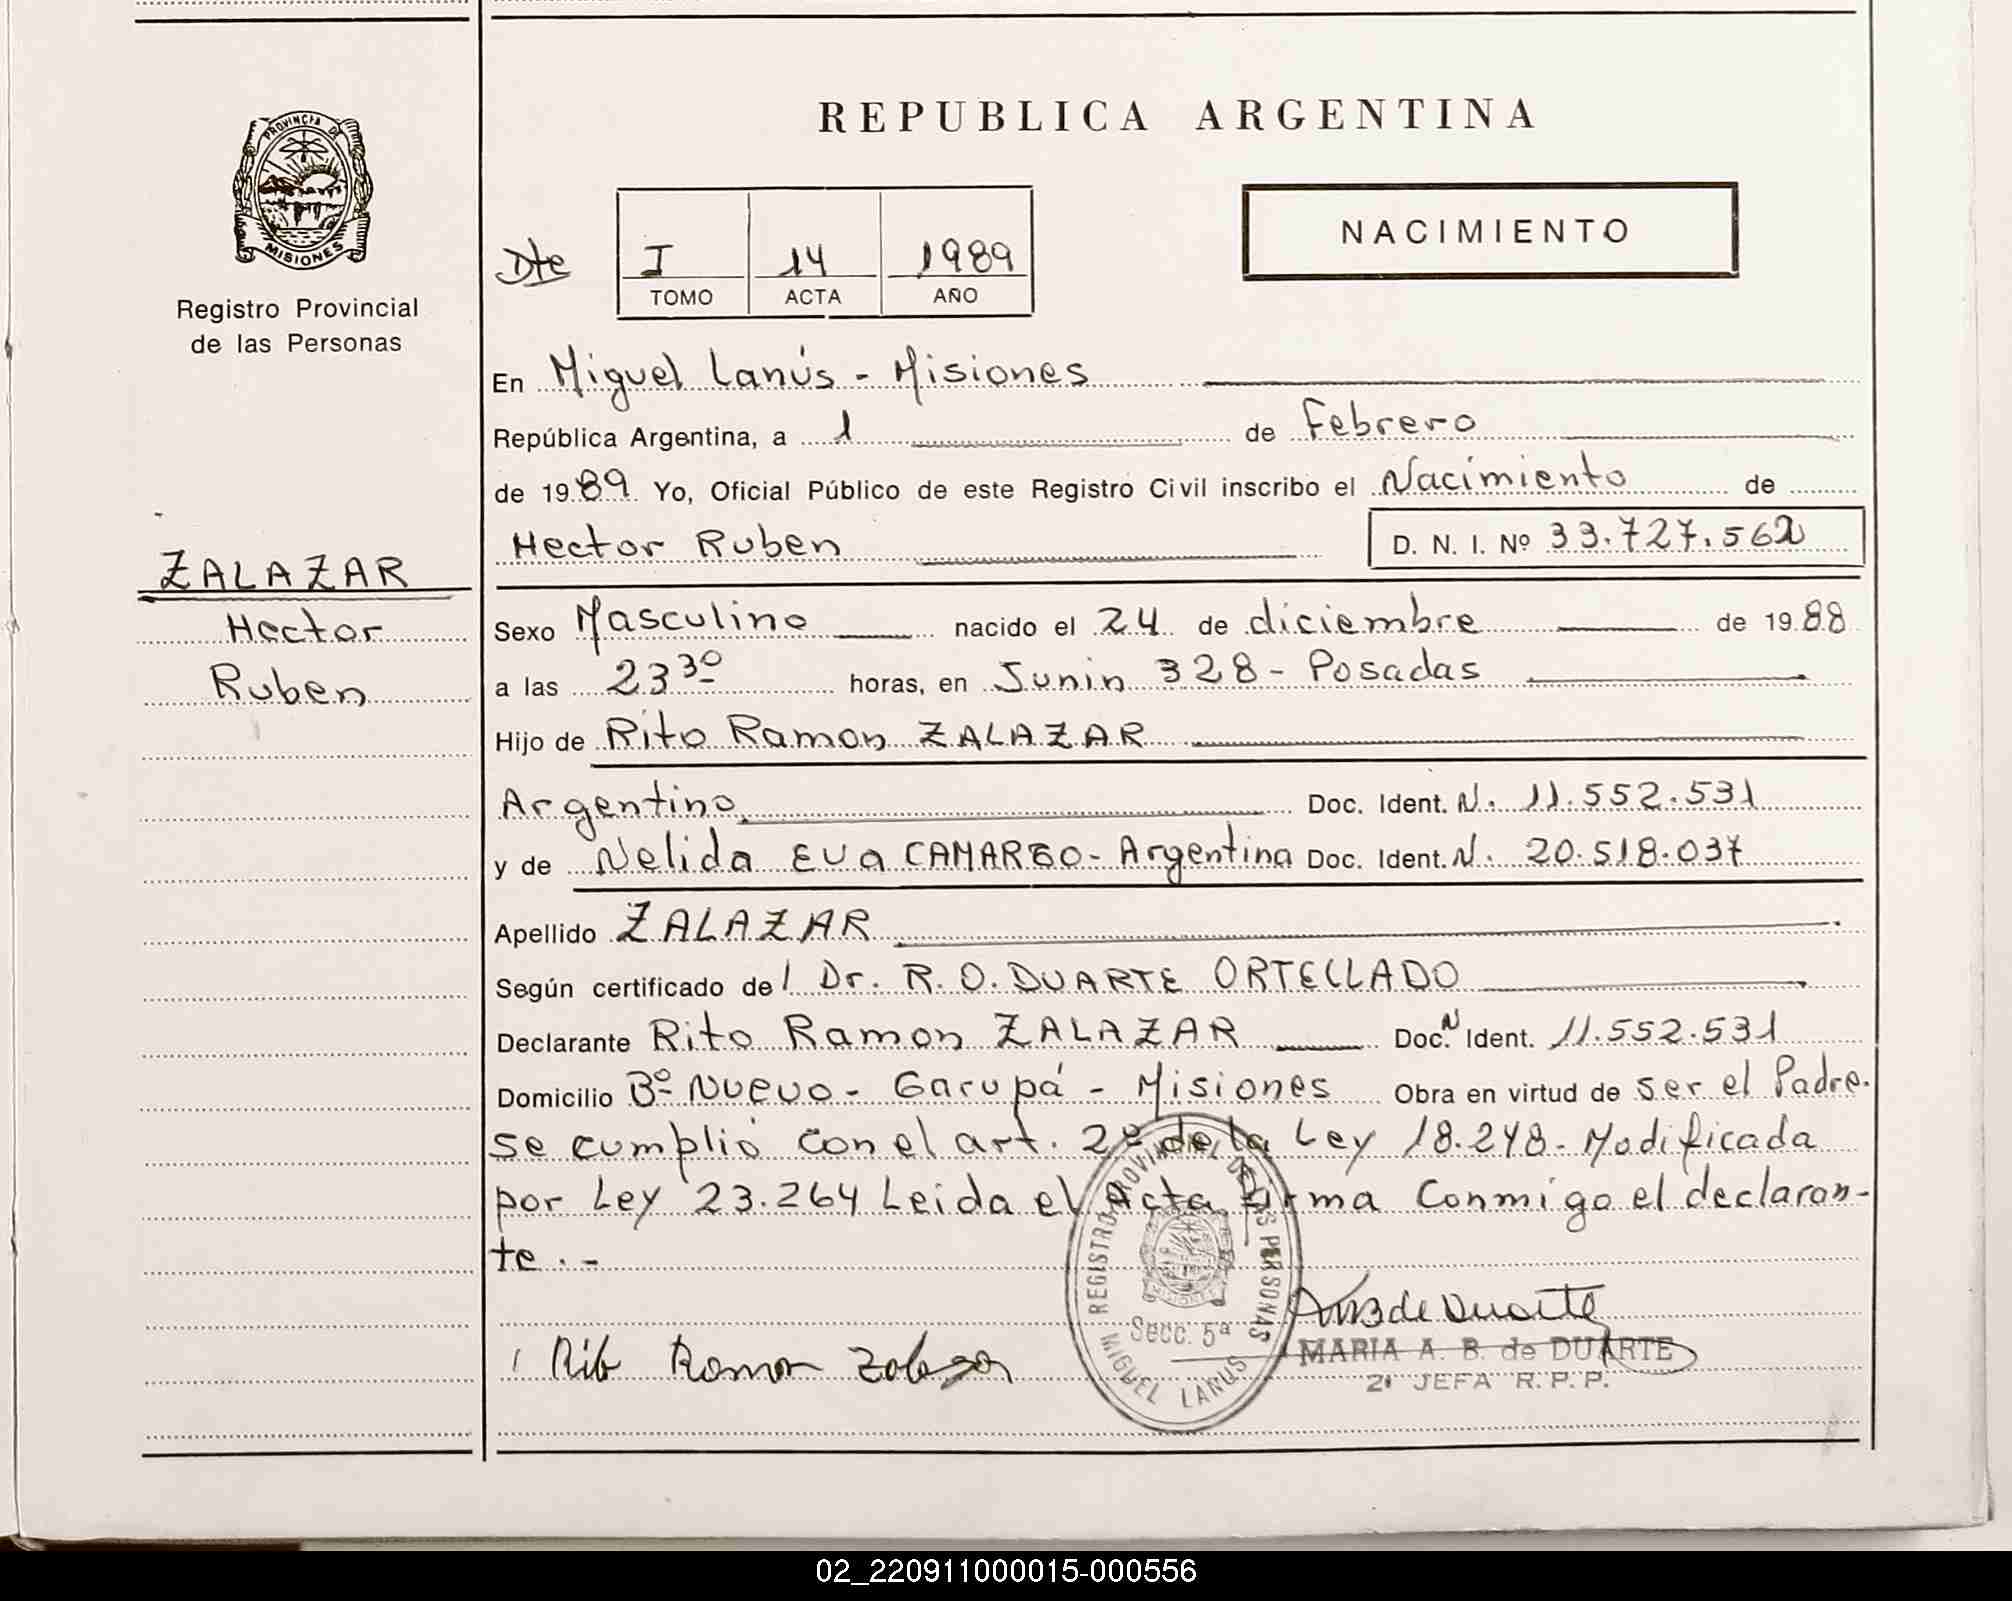 REPUBLICA ARGENTINA
PROVINCIA DE
MISIONES
Registro Provincial
de las Personas
Dte
I 14 1989
TOMO ACTA AÑO
NACIMIENTO
En Miguel Lanús - Misiones
República Argentina, a 1 de Febrero
de 1989 Yo, Oficial Público de este Registro Civil inscribo el Nacimiento de
Hector Ruben D. N. I. Nº 33.727.562
ZALAZAR
Hector
Ruben
Sexo Masculino nacido el 24 de diciembre de 1988
a las 23 30 horas, en Junin 328 - Posadas
Hijo de Rito Ramon ZALAZAR
Argentino Doc. Ident. N. 11.552.531
y de Nelida Eva CAMARGO - Argentina Doc. Ident. N. 20.518.037
Apellido ZALAZAR
Según certificado del Dr. R. O. DUARTE ORTELLADO
Declarante Rito Ramon ZALAZAR Doc. N Ident. 11.552.531
Domicilio Bº Nuevo - Garupá - Misiones Obra en virtud de ser el Padre.
se cumplió con el art. 2º de la Ley 18.248 - Modificada
por Ley 23.264 Leida el Acta Firma Conmigo el declaran-
te . -
REGISTRO PROVINCIAL DE LAS PERSONAS
MISIONES
Secc. 5ª
MIGUEL LANUS
Rito Ramon Zalazar
de Duarte
MARIA A. B. de DUARTE
2ª JEFA R. P. P.
02_220911000015-000556